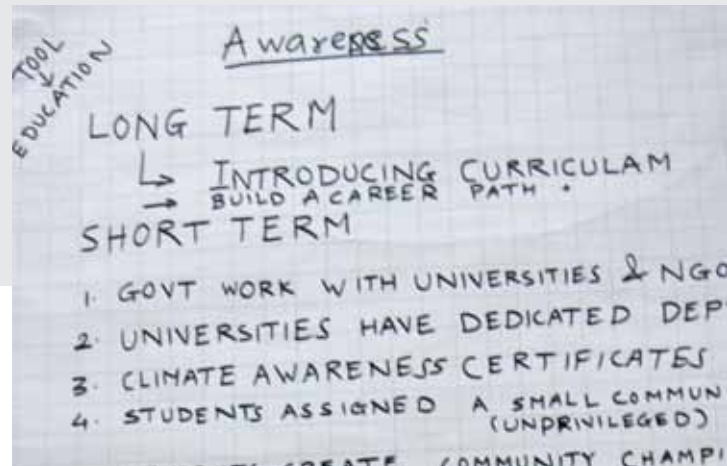 TOOL
↓
EDUCATION
Awareness
LONG TERM
↳ INTRODUCING CURRICULAM
→ BUILD A CAREER PATH.
SHORT TERM
1. GOVT WORK WITH UNIVERSITIES & NGO
2. UNIVERSITIES HAVE DEDICATED DEP
3. CLIMATE AWARENESS CERTIFICATES
4. STUDENTS ASSIGNED A SMALL COMMUN
(UNPRIVILEGED)
CREATE COMMUNITY CHAMPI